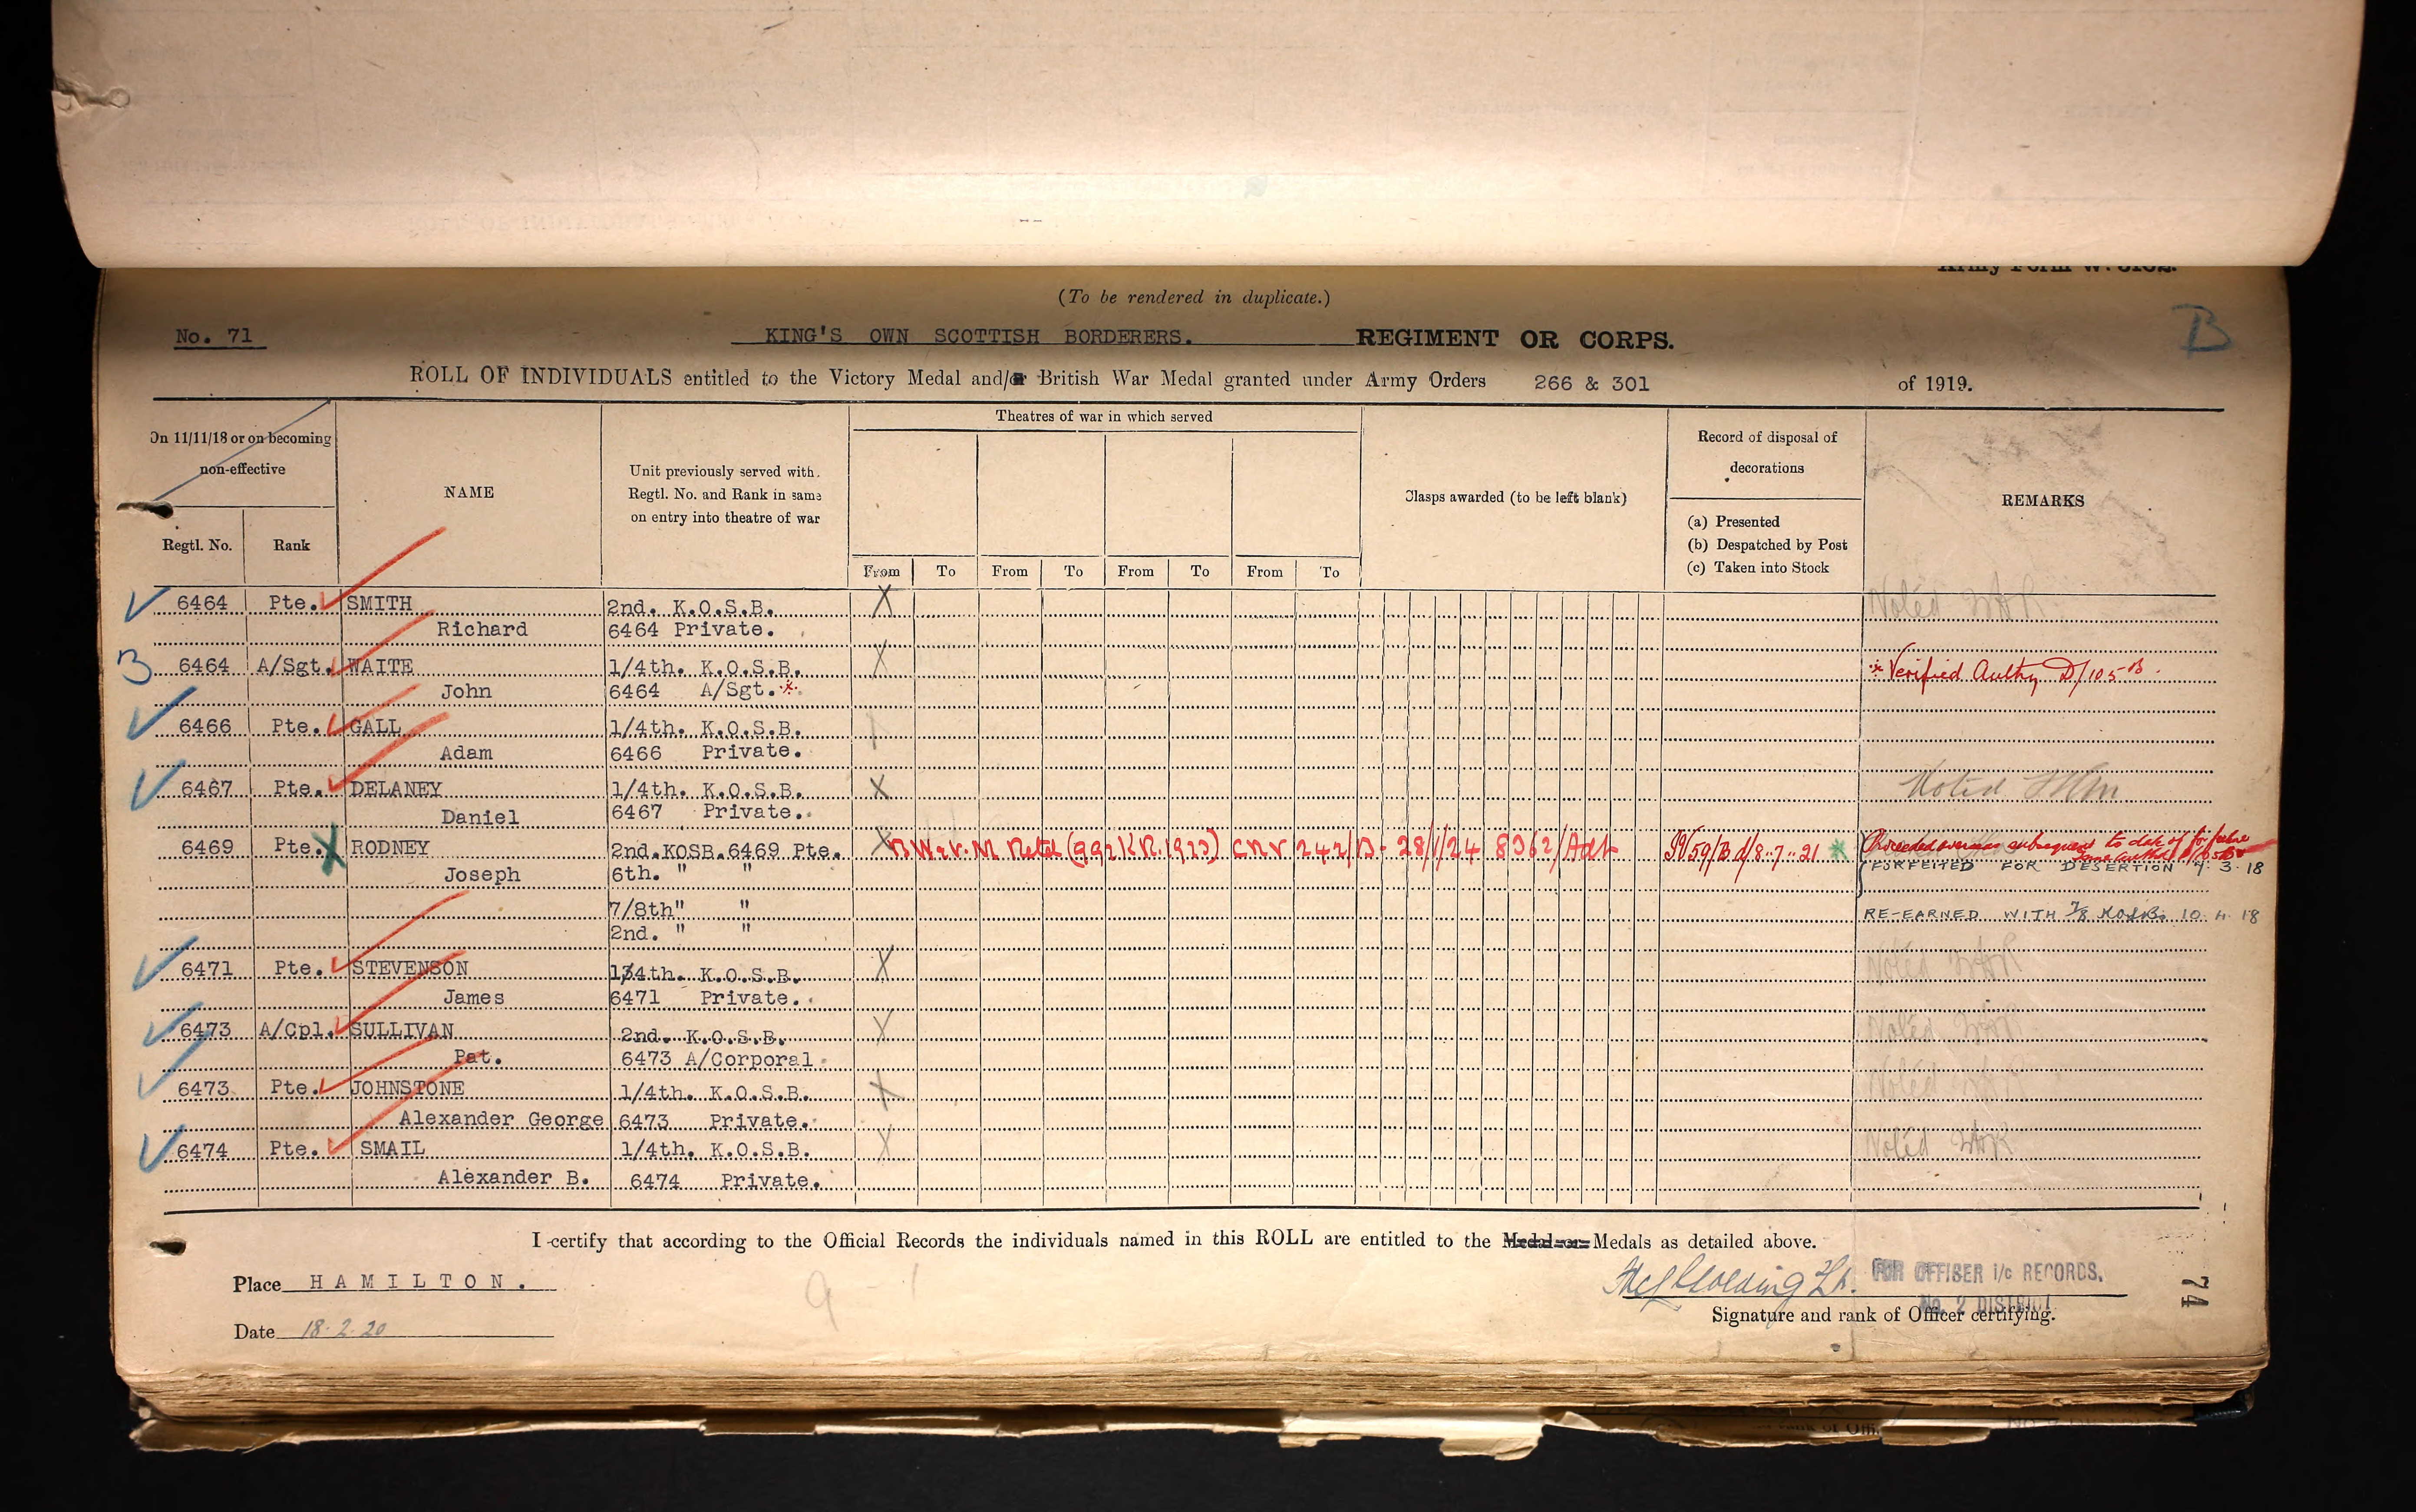 (To be rendered in duplicate.)
B
No. 71 KING'S OWN SCOTTISH BORDERERS. REGIMENT OR CORPS.
ROLL OF INDIVIDUALS entitled to the Victory Medal and/or British War Medal granted under Army Orders 266 & 301 of 1919.
On 11/11/18 or on becoming non-effective
Regtl. No.
Rank
NAME
Unit previously served with. Regtl. No. and Rank in same on entry into theatre of war
Theatres of war in which served
From To From To From To From To
Clasps awarded (to be left blank)
Record of disposal of decorations
(a) Presented
(b) Despatched by Post
(c) Taken into Stock
REMARKS
6464 Pte. SMITH 2nd. K.O.S.B. X Noted
Richard 6464 Private.
3 6464 A/Sgt. WAITE 1/4th. K.O.S.B. X * Verified Authy D/105 B.
John 6464 A/Sgt. *
6466 Pte. GALL 1/4th. K.O.S.B.
Adam 6466 Private.
6467 Pte. DELANEY 1/4th. K.O.S.B. X Noted
Daniel 6467 Private.
6469 Pte. X RODNEY 2nd.KOSB.6469 Pte. X B.W. & V. M Retd (992 K R. 1923) CRV 242/B. 28/1/24 8362/Adt IV/59/B d/8.7.21 * Proceeded overseas subsequent to date of forfeiture
Joseph 6th. " " FORFEITED FOR DESERTION 9.3.18
7/8th" " RE-EARNED WITH 7/8 KOSB. 10.4.18
2nd. " "
6471 Pte. STEVENSON 1/4th. K.O.S.B. X Noted
James 6471 Private.
6473 A/Cpl. SULLIVAN 2nd. K.O.S.B. X Noted
Pat. 6473 A/Corporal
6473 Pte. JOHNSTONE 1/4th. K.O.S.B. X Noted
Alexander George 6473 Private.
6474 Pte. SMAIL 1/4th. K.O.S.B. X Noted
Alexander B. 6474 Private.
I certify that according to the Official Records the individuals named in this ROLL are entitled to the Medal or Medals as detailed above.
Place HAMILTON.
9 - 1
FOR OFFISER i/c RECORDS.
No. 2 DISTRICT
Signature and rank of Officer certifying.
Date 18.2.20
74